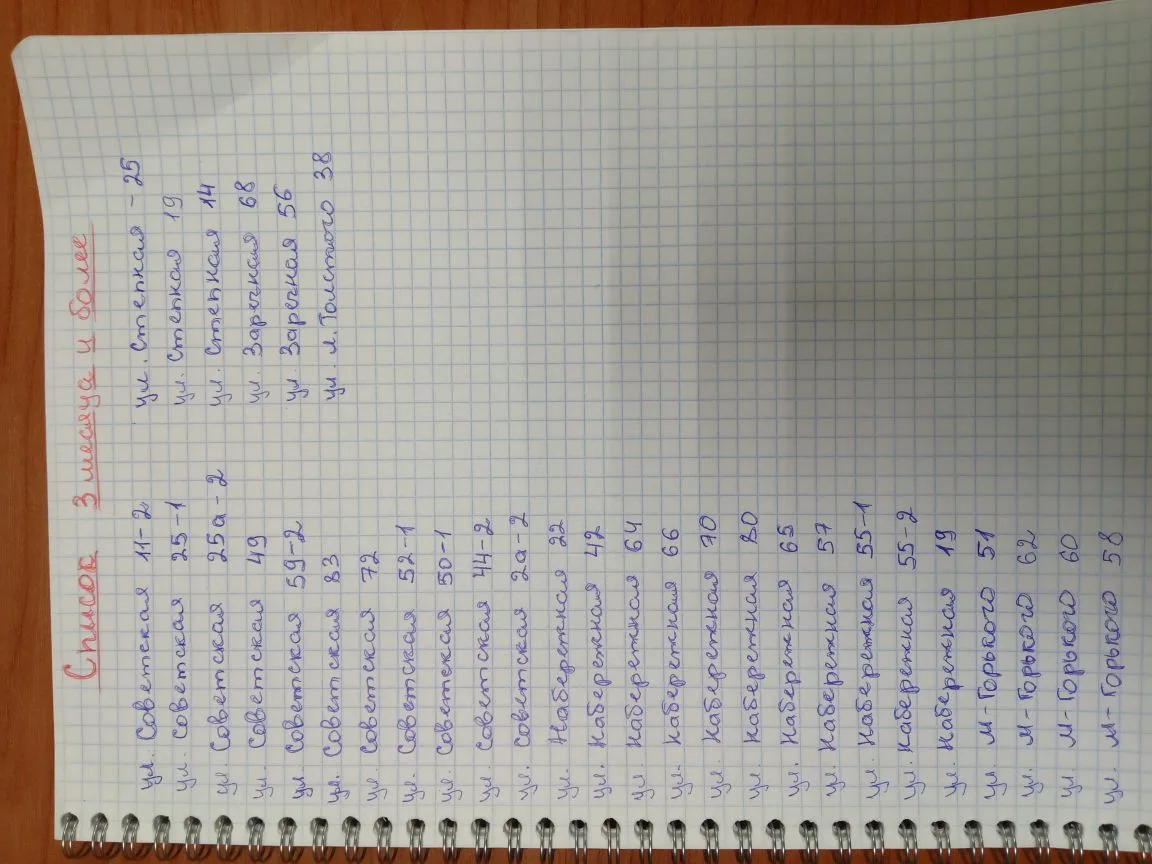 Список 3 месяца и более
ул. Советская 11-2
ул. Советская 25-1
ул. Советская 25а-2
ул. Советская 49
ул. Советская 59-2
ул. Советская 83
ул. Советская 72
ул. Советская 52-1
ул. Советская 50-1
ул. Советская 44-2
ул. Советская 2а-2
ул. Набережная 22
ул. Набережная 42
ул. Набережная 64
ул. Набережная 66
ул. Набережная 70
ул. Набережная 80
ул. Набережная 65
ул. Набережная 57
ул. Набережная 55-1
ул. Набережная 55-2
ул. Набережная 19
ул. М-Горького 51
ул. М-Горького 62
ул. М-Горького 60
ул. М-Горького 58
ул. Степная - 25
ул. Степная 19
ул. Степная 14
ул. Заречная 68
ул. Заречная 56
ул. Л. Толстого 38